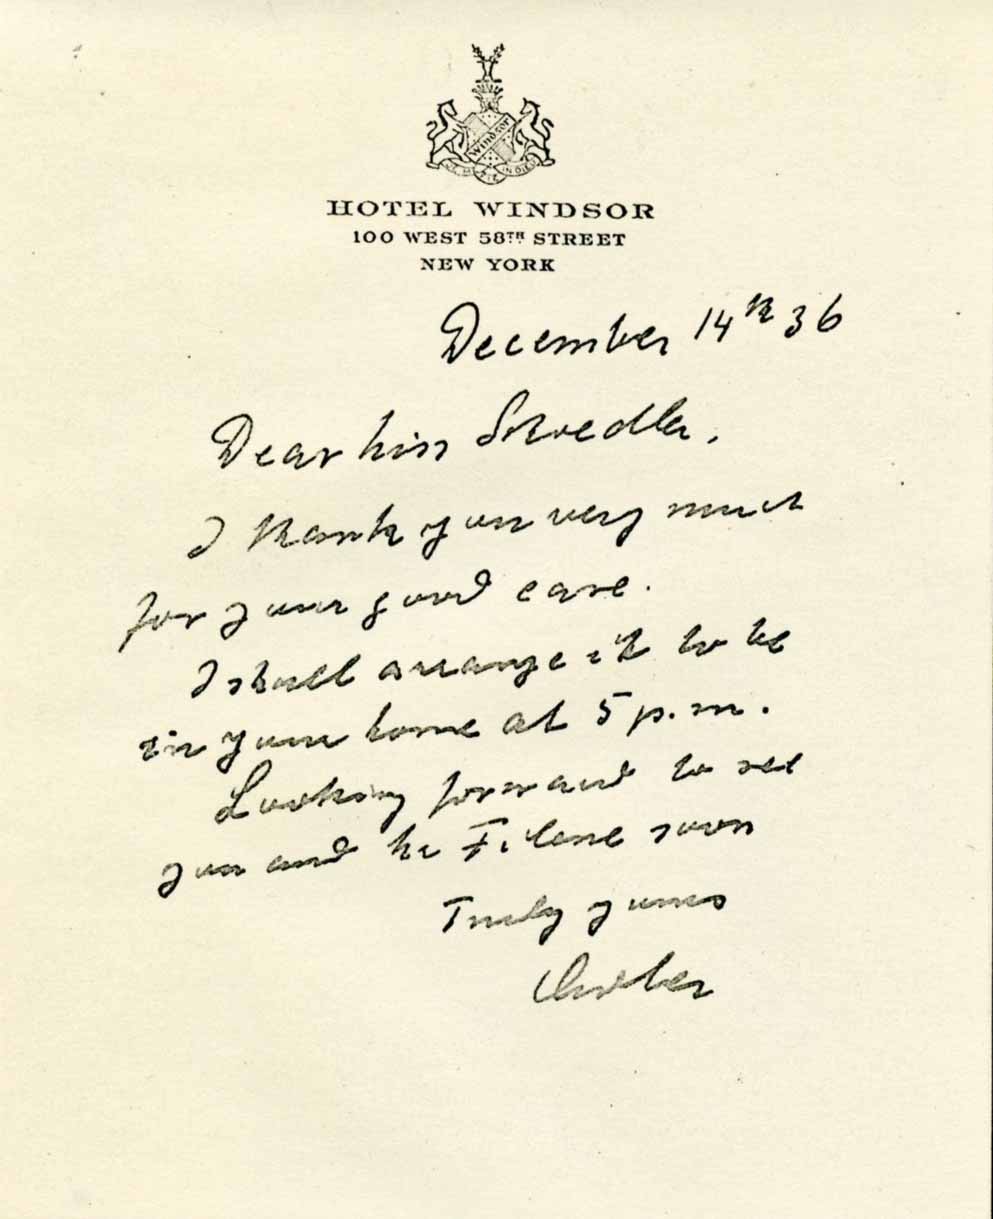 Windsor
HOTEL WINDSOR
100 WEST 58TH STREET
NEW YORK
December 14th 36
Dear Miss
I thank you very much
for your good care.
I shall arrange it to be
in your home at 5 p.m.
Looking forward to see
you and Mr Filene soon
Truly yours